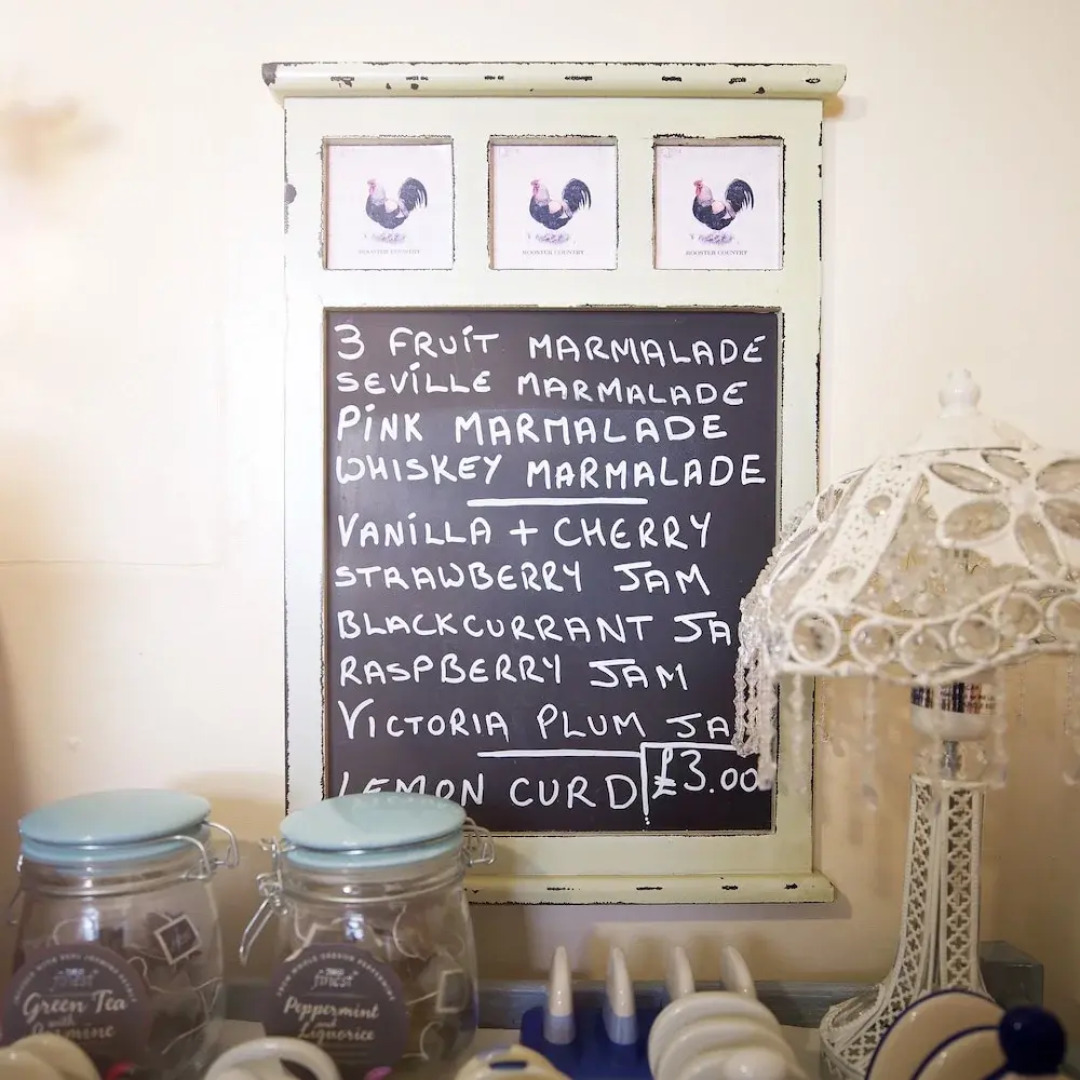 ROOSTER COUNTRY
ROOSTER COUNTRY
ROOSTER COUNTRY
3 FRUIT MARMALADE
SEVILLE MARMALADE
PINK MARMALADE
WHISKEY MARMALADE
VANILLA + CHERRY
STRAWBERRY JAM
BLACKCURRANT JA
RASPBERRY JAM
VICTORIA PLUM JA
LEMON CURD £3.00
FINEST
Green Tea
Jasmine
FINEST
Peppermint
Liquorice